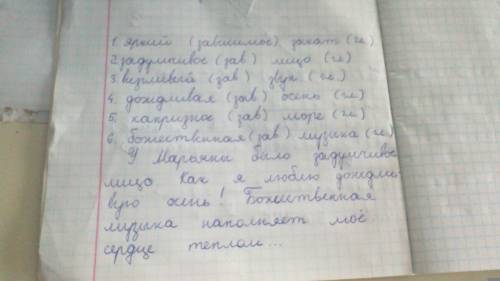 1. яркий (зависимое) закат (гл)
2. задумчивое (зав) лицо (гл)
3. (зав) звук (гл)
4. дождливая (зав) осень (гл)
5. капризное (зав) море (гл)
6. божественная (зав) музыка (гл)
У Марианны было задумчивое
лицо Как я люблю дождли-
вую осень! Божественная
музыка наполняет моё
сердце теплом...